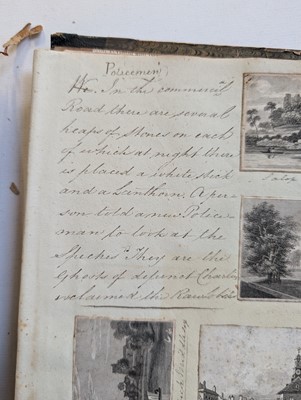 Policemen
We. In the commercl
Road there are several
heaps of stones on each
of which at night there
is placed a white stick
and a Lanthorn. A per-
son told a new Police
man to look at the
Spectres "They are the
Ghosts of defunct Charlies
exclaimed the